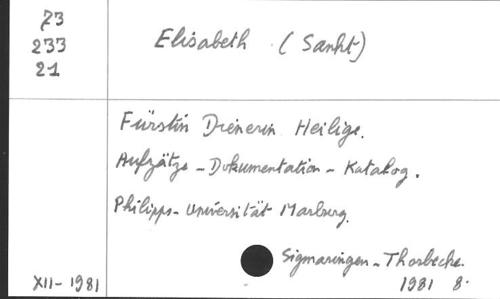 73
233
21
Elisabeth (Sankt)
Fürstin Dienerin Heilige.
Aufzätze - Dokumentation - Katalog.
Philipps-Universität Marburg.
Sigmaringen - Thorbecke.
XII-1981
1981 8.